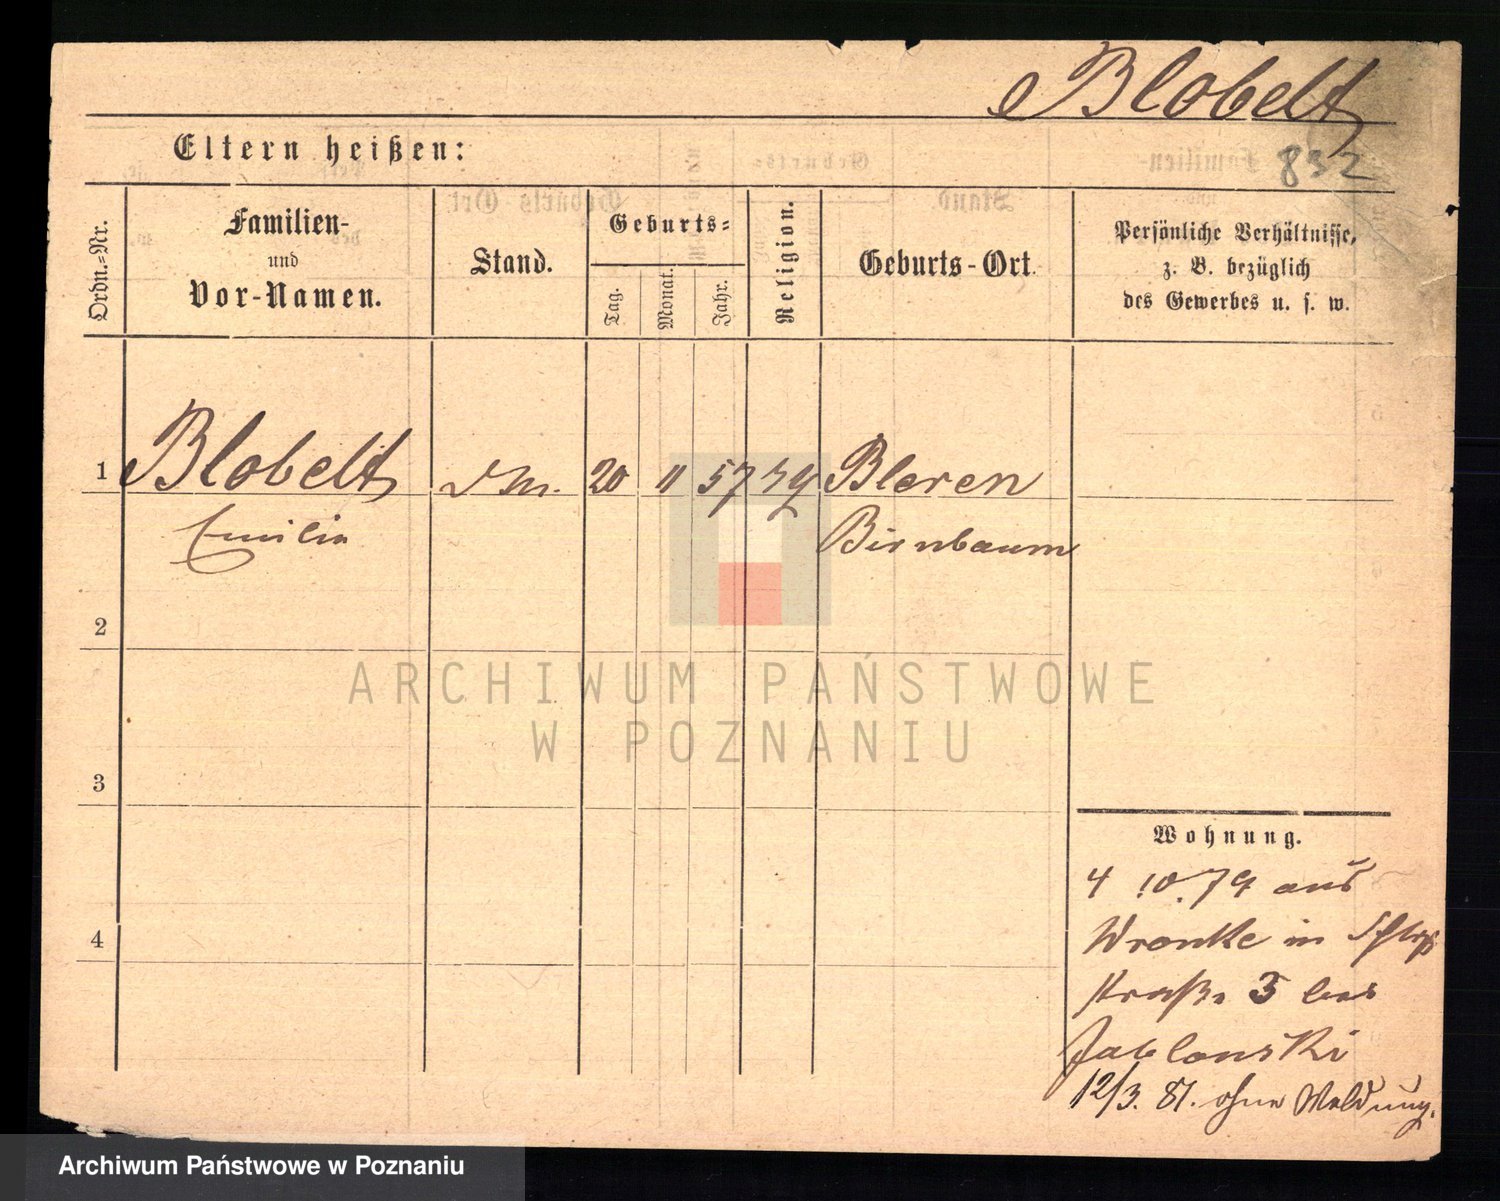 Blobelt
832
Eltern heißen:
Ordn.-Nr.
Familien-
und
Vor-Namen.
Stand.
Geburts-
Tag.
Monat.
Jahr.
Religion.
Geburts-Ort.
Persönliche Verhältnisse,
z. B. bezüglich
des Gewerbes u. s. w.
1 Blobelt 20 11 57 Bleren
Emilie Birnbaum
2
3
4
Wohnung.
4 10. 79 aus
Wronke in Schloß
straße 3 bei
Jablonski
12/3. 81. ohne Meldung.
ARCHIWUM PAŃSTWOWE
W POZNANIU
Archiwum Państwowe w Poznaniu